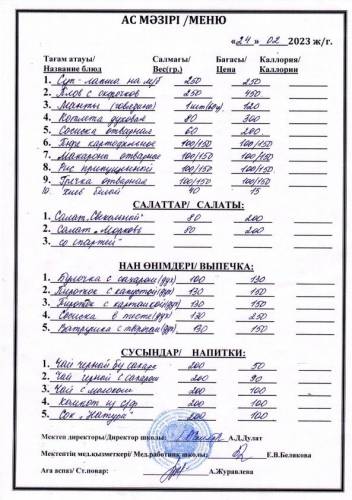 АС МӘЗІРІ /МЕНЮ
«24» 02 2023 ж/г.
Тағам атауы/ Салмағы/ Бағасы/ Каллория/
Название блюд Вес(гр.) Цена Каллории
1. Суп-лапша на м/б 250 250
2. Плов с 250 450
3. Манты (говядина) 1шт 120
4. Котлета духовая 80 300
5. Сосиска отварная 60 200
6. Пюре картофельное 100/150 100/150
7. Макароны отварные 100/150 100/150
8. Рис припущенный 100/150 100/150
9. Гречка отварная 100/150 100/150
10. Хлеб белый 40 15
САЛАТТАР/ САЛАТЫ:
1. Салат „Свекольный" 80 200
2. Салат „Морковь 80 200
3. со спартей"
НАН ӨНІМДЕРІ/ ВЫПЕЧКА:
1. Булочка с сахаром (дух) 100 130
2. Пирожок с капустой (дух) 130 150
3. Пирожок с картошкой (дух) 130 150
4. Сосиска в тесте (дух) 130 250
5. Ватрушка с творогом (дух) 130 150
СУСЫНДАР/ НАПИТКИ:
1. Чай черный без сахара 200 50
2. Чай черный с сахаром 200 90
3. Чай с молоком 200 100
4. Компот из с/ф 200 100
5. Сок „Натура" 200 100
Мектеп директоры/Директор школы: А.Д.Дулат
Мектептің мед.қызметкері/ Мед.работник школы: Е.В.Белякова
Аға аспаз/ Ст.повар: А.Журавлева